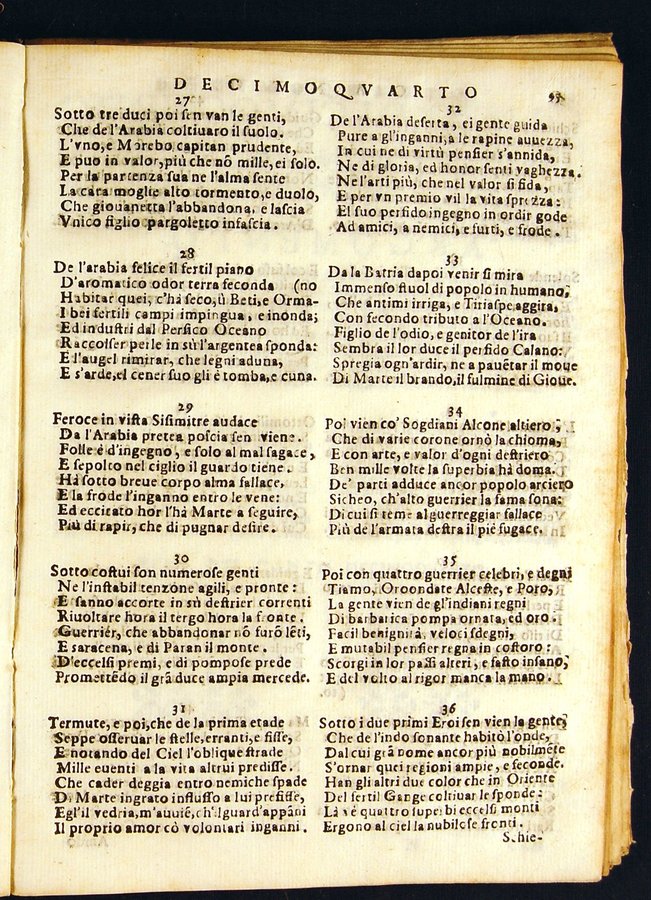 DECIMOQVARTO
95
27
Sotto tre duci poi sen van le genti,
Che de l'Arabia coltiuaro il suolo.
L'vno, e Morebo capitan prudente,
E puo in valor, più che nō mille, ei solo.
Per la partenza sua ne l'alma sente
La cara moglie alto tormento, e duolo,
Che giouanetta l'abbandona, e lascia
Vnico figlio pargoletto infascia.
28
De l'arabia felice il fertil piano
D'aromatico odor terra feconda (no
Habitar quei, c'hà seco, ù Beti, e Orma-
I bei fertili campi impingua, e inonda;
Ed industri dal Persico Oceano
Raccolser perle in sù l'argentea sponda:
E l'augel rimirar, che legni aduna,
E s'arde, el cener suo gli è tomba, e cuna.
29
Feroce in vista Sisimitre audace
Da l'Arabia pretea poscia sen viene.
Folle è d'ingegno, e solo al mal sagace,
E sepolto nel ciglio il guardo tiene.
Hà sotto breue corpo alma fallace,
E la frode l'inganno entro le vene:
Ed eccitato hor l'hà Marte a seguire,
Più di rapir, che di pugnar desire.
30
Sotto costui son numerose genti
Ne l'instabil tenzone agili, e pronte:
E sanno accorte in sù destrier correnti
Riuoltare hora il tergo hora la fronte.
Guerrier, che abbandonar nō furō lēti,
E saracena, e di Paran il monte.
D'eccelsi premi, e di pompose prede
Promettēdo il grā duce ampia mercede.
31
Termute, e poi, che de la prima etade
Seppe osseruar le stelle, erranti, e fisse,
E notando del Ciel l'oblique strade
Mille euenti a la vita altrui predisse.
Che cader deggia entro nemiche spade
Di Marte ingrato influsso a lui prefisse,
Egl'il vedria, m'auuisē, ch'il guard'appāni
Il proprio amor cō volontari inganni.
32
De l'Arabia deserta, ei gente guida
Pure a gl'inganni, a le rapine auuezza,
In cui ne di virtù pensier s'annida,
Ne di gloria, ed honor senti vaghezza.
Ne l'arti più, che nel valor si fida,
E per vn premio vil la vita sprezza:
El suo perfido ingegno in ordir gode
Ad amici, a nemici, e furti, e frode.
33
Da la Batria dapoi venir si mira
Immenso stuol di popolo in humano;
Che antimi irriga, e Titiaspe aggira,
Con secondo tributo a l'Oceano.
Figlio de l'odio, e genitor de l'ira
Sembra il lor duce il perfido Calano:
Spregia ogn'ardir, ne a pauētar il moue
Di Marte il brando, il fulmine di Gioue.
34
Poi vien co' Sogdiani Alcone altiero,
Che di varie corone ornò la chioma,
E con arte, e valor d'ogni destriero
Ben mille volte la superbia hà doma.
De' parti adduce ancor popolo arciero
Sicheo, ch'alto guerrier la fama sona:
Di cui si teme al guerreggiar fallace
Più de l'armata destra il piè fugace.
35
Poi con quattro guerrier celebri, e degni
Tiamo, Oroondate Alceste, e Poro,
La gente vien de gl'indiani regni
Di barbatica pompa ornata, ed oro.
Facil benignità, veloci sdegni,
E mutabil pensier regna in costoro:
Scorgi in lor passi alteri, e fasto insano;
E del volto al rigor manca la mano.
36
Sotto i due primi Eroi sen vien la gente,
Che de l'indo sonante habitò l'onde,
Dal cui grā nome ancor più nobilmēte
S'ornar quei regioni ampie, e seconde.
Han gli altri due color che in Oriente
Del fertil Gange coltiuar le sponde:
Là vè quattro superbi eccelsi monti
Ergono al ciel la nubilose fronti.
Schie-